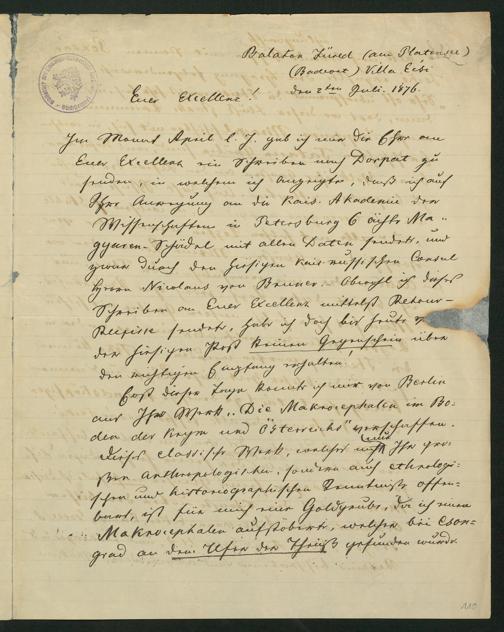 Balaton Füred (am Plattensee)
(Badeort) Villa Eisi
den 2ten Juli. 1876.
Euer Excellenz!
Im Monat April l. J. gab ich mir die Ehre an
Euer Excellenz ein Schreiben nach Dorpat zu
senden, in welchem ich anzeigte, daß ich auf
Ihre Anregung an die Kais. Akademie der
Wissenschaften in Petersburg 6 ächte Ma-
gyaren-Schädel mit allen Daten sendete, und
zwar durch den hiesigen kais. russischen Consul
Herrn Nicolaus von Obwohl ich dieses
Schreiben an Euer Excellenz mittelst Retour-
Recepisse sendete, habe ich doch bis heute v
der hiesigen Post keinen Gegenschein über
den richtigen Empfang erhalten.
Erst dieser Tage konnte ich mir von Berlin
aus Ihr Werk „Die Makrocephalen im Bo-
den der Krym und Österreichs" verschaffen.
Dieses classische Werk, welches nicht nur Ihre gro-
ßen Anthropologischen, sondern auch ethnologi-
schen und historiographischen Kenntniße offen-
bart, ist für mich eine Goldgrube, da ich einen
Makrocephalen aufstöberte, welcher bei Cson-
grad an dem Ufer der Theiß gefunden wurde
110